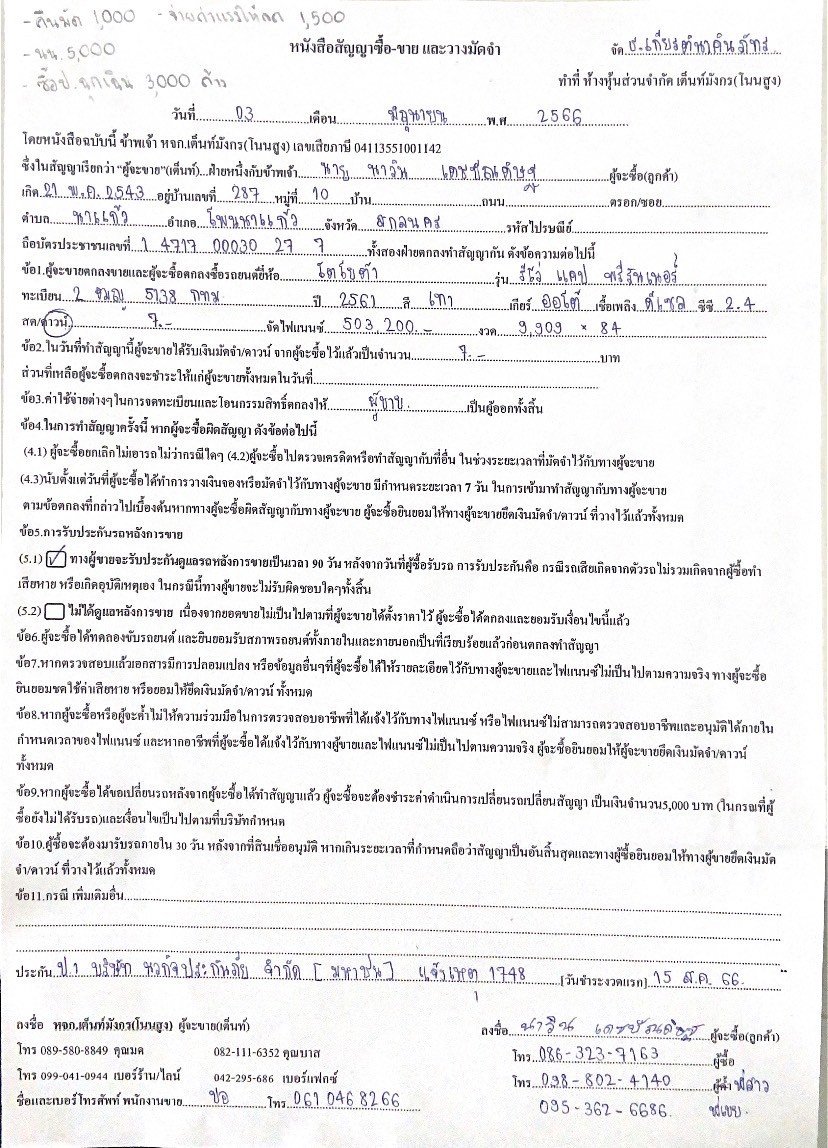 - คืนมัด 1,000 - จ่ายค่าแรงให้ลด 1,500
- นน. 5,000
- ซื้อป. ฉุกเฉิน 3,000 ค้าง
หนังสือสัญญาซื้อ-ขาย และวางมัดจำ จัด ธ.เกียรตินาคินภัทร
ทำที่ ห้างหุ้นส่วนจำกัด เต็นท์มังกร(โนนสูง)
วันที่ 03 เดือน มิถุนายน พ.ศ 2566
โดยหนังสือฉบับนี้ ข้าพเจ้า หจก.เต็นท์มังกร(โนนสูง) เลขเสียภาษี 04113551001142
ซึ่งในสัญญาเรียกว่า "ผู้จะขาย"(เต็นท์)...ฝ่ายหนึ่งกับข้าพเจ้า นาย นาวิน ผู้จะซื้อ(ลูกค้า)
เกิด 21 พ.ค. 2543 อยู่บ้านเลขที่ 287 หมู่ที่ 10 บ้าน ถนน ตรอก/ซอย
ตำบล นาแก้ว อำเภอ โพนนาแก้ว จังหวัด สกลนคร รหัสไปรษณีย์
ถือบัตรประชาชนเลขที่ 1 4717 00030 27 7 ทั้งสองฝ่ายตกลงทำสัญญากัน ดังข้อความต่อไปนี้
ข้อ1.ผู้จะขายตกลงขายและผู้จะซื้อตกลงซื้อรถยนต์ยี่ห้อ โตโยต้า รุ่น รีโว่ แคป พรีรันเนอร์
ทะเบียน 2 ขฒญ 5138 กทม ปี 2561 สี เทา เกียร์ ออโต้ เชื้อเพลิง ดีเซล ซีซี 2.4
สด/ดาวน์ 7.- จัดไฟแนนซ์ 503,200.- งวด 9,909 × 84
ข้อ2.ในวันที่ทำสัญญานี้ผู้จะขายได้รับเงินมัดจำ/ดาวน์ จากผู้จะซื้อไว้แล้วเป็นจำนวน 7.- บาท
ส่วนที่เหลือผู้จะซื้อตกลงจะชำระให้แก่ผู้จะขายทั้งหมดในวันที่
ข้อ3.ค่าใช้จ่ายต่างๆในการจดทะเบียนและโอนกรรมสิทธิ์ตกลงให้ ผู้ขาย. เป็นผู้ออกทั้งสิ้น
ข้อ4.ในการทำสัญญาครั้งนี้ หากผู้จะซื้อผิดสัญญา ดังข้อต่อไปนี้
(4.1) ผู้จะซื้อยกเลิกไม่เอารถไม่ว่ากรณีใดๆ (4.2)ผู้จะซื้อไปตรวจเครดิตหรือทำสัญญากับที่อื่น ในช่วงระยะเวลาที่มัดจำไว้กับทางผู้จะขาย
(4.3)นับตั้งแต่วันที่ผู้จะซื้อได้ทำการวางเงินจองหรือมัดจำไว้กับทางผู้จะขาย มีกำหนดระยะเวลา 7 วัน ในการเข้ามาทำสัญญากับทางผู้จะขาย
ตามข้อตกลงที่กล่าวไปเบื้องต้นหากทางผู้จะซื้อผิดสัญญากับทางผู้จะขาย ผู้จะซื้อยินยอมให้ทางผู้จะขายยึดเงินมัดจำ/ดาวน์ ที่วางไว้แล้วทั้งหมด
ข้อ5.การรับประกันรถหลังการขาย
(5.1) ทางผู้ขายจะรับประกันดูแลรถหลังการขายเป็นเวลา 90 วัน หลังจากวันที่ผู้ซื้อรับรถ การรับประกันคือ กรณีรถเสียเกิดจากตัวรถไม่รวมเกิดจากผู้ซื้อทำ
เสียหาย หรือเกิดอุบัติเหตุเอง ในกรณีนี้ทางผู้ขายจะไม่รับผิดชอบใดๆทั้งสิ้น
(5.2) ไม่ได้ดูแลหลังการขาย เนื่องจากยอดขายไม่เป็นไปตามที่ผู้จะขายได้ตั้งราคาไว้ ผู้จะซื้อได้ตกลงและยอมรับเงื่อนไขนี้แล้ว
ข้อ6.ผู้จะซื้อได้ทดลองขับรถยนต์ และยินยอมรับสภาพรถยนต์ทั้งภายในและภายนอกเป็นที่เรียบร้อยแล้วก่อนตกลงทำสัญญา
ข้อ7.หากตรวจสอบแล้วเอกสารมีการปลอมแปลง หรือข้อมูลอื่นๆที่ผู้จะซื้อได้ให้รายละเอียดไว้กับทางผู้จะขายและไฟแนนซ์ไม่เป็นไปตามความจริง ทางผู้จะซื้อ
ยินยอมชดใช้ค่าเสียหาย หรือยอมให้ยึดเงินมัดจำ/ดาวน์ ทั้งหมด
ข้อ8.หากผู้จะซื้อหรือผู้จะค้ำไม่ให้ความร่วมมือในการตรวจสอบอาชีพที่ได้แจ้งไว้กับทางไฟแนนซ์ หรือไฟแนนซ์ไม่สามารถตรวจสอบอาชีพและอนุมัติได้ภายใน
กำหนดเวลาของไฟแนนซ์ และหากอาชีพที่ผู้จะซื้อได้แจ้งไว้กับทางผู้ขายและไฟแนนซ์ไม่เป็นไปตามความจริง ผู้จะซื้อยินยอมให้ผู้จะขายยึดเงินมัดจำ/ดาวน์
ทั้งหมด
ข้อ9.หากผู้จะซื้อได้ขอเปลี่ยนรถหลังจากผู้จะซื้อได้ทำสัญญาแล้ว ผู้จะซื้อจะต้องชำระค่าดำเนินการเปลี่ยนรถเปลี่ยนสัญญา เป็นเงินจำนวน5,000 บาท (ในกรณีที่ผู้
ซื้อยังไม่ได้รับรถ)และเงื่อนไขเป็นไปตามที่บริษัทกำหนด
ข้อ10.ผู้ซื้อจะต้องมารับรถภายใน 30 วัน หลังจากที่สินเชื่ออนุมัติ หากเกินระยะเวลาที่กำหนดถือว่าสัญญาเป็นอันสิ้นสุดและทางผู้ซื้อยินยอมให้ทางผู้ขายยึดเงินมัด
จำ/ดาวน์ ที่วางไว้แล้วทั้งหมด
ข้อ11.กรณี เพิ่มเติมอื่น
ประกัน ป.1 บริษัท นวกิจประกันภัย จำกัด [มหาชน] แจ้งเหตุ 1748 [วันชำระงวดแรก] 15 ส.ค. 66.
ลงชื่อ หจก.เต็นท์มังกร(โนนสูง) ผู้จะขาย(เต็นท์) ลงชื่อ นาวิน ผู้จะซื้อ(ลูกค้า)
โทร 089-580-8849 คุณมด 082-111-6352 คุณบาส โทร 086-323-7163 ผู้ซื้อ
โทร 099-041-0944 เบอร์ร้าน/ไลน์ 042-295-686 เบอร์แฟกซ์ โทร 098-802-4140 ผู้ค้ำ พี่สาว
ชื่อและเบอร์โทรศัพท์ พนักงานขาย ปอ โทร 061 046 8266 095-362-6686. พี่เขย